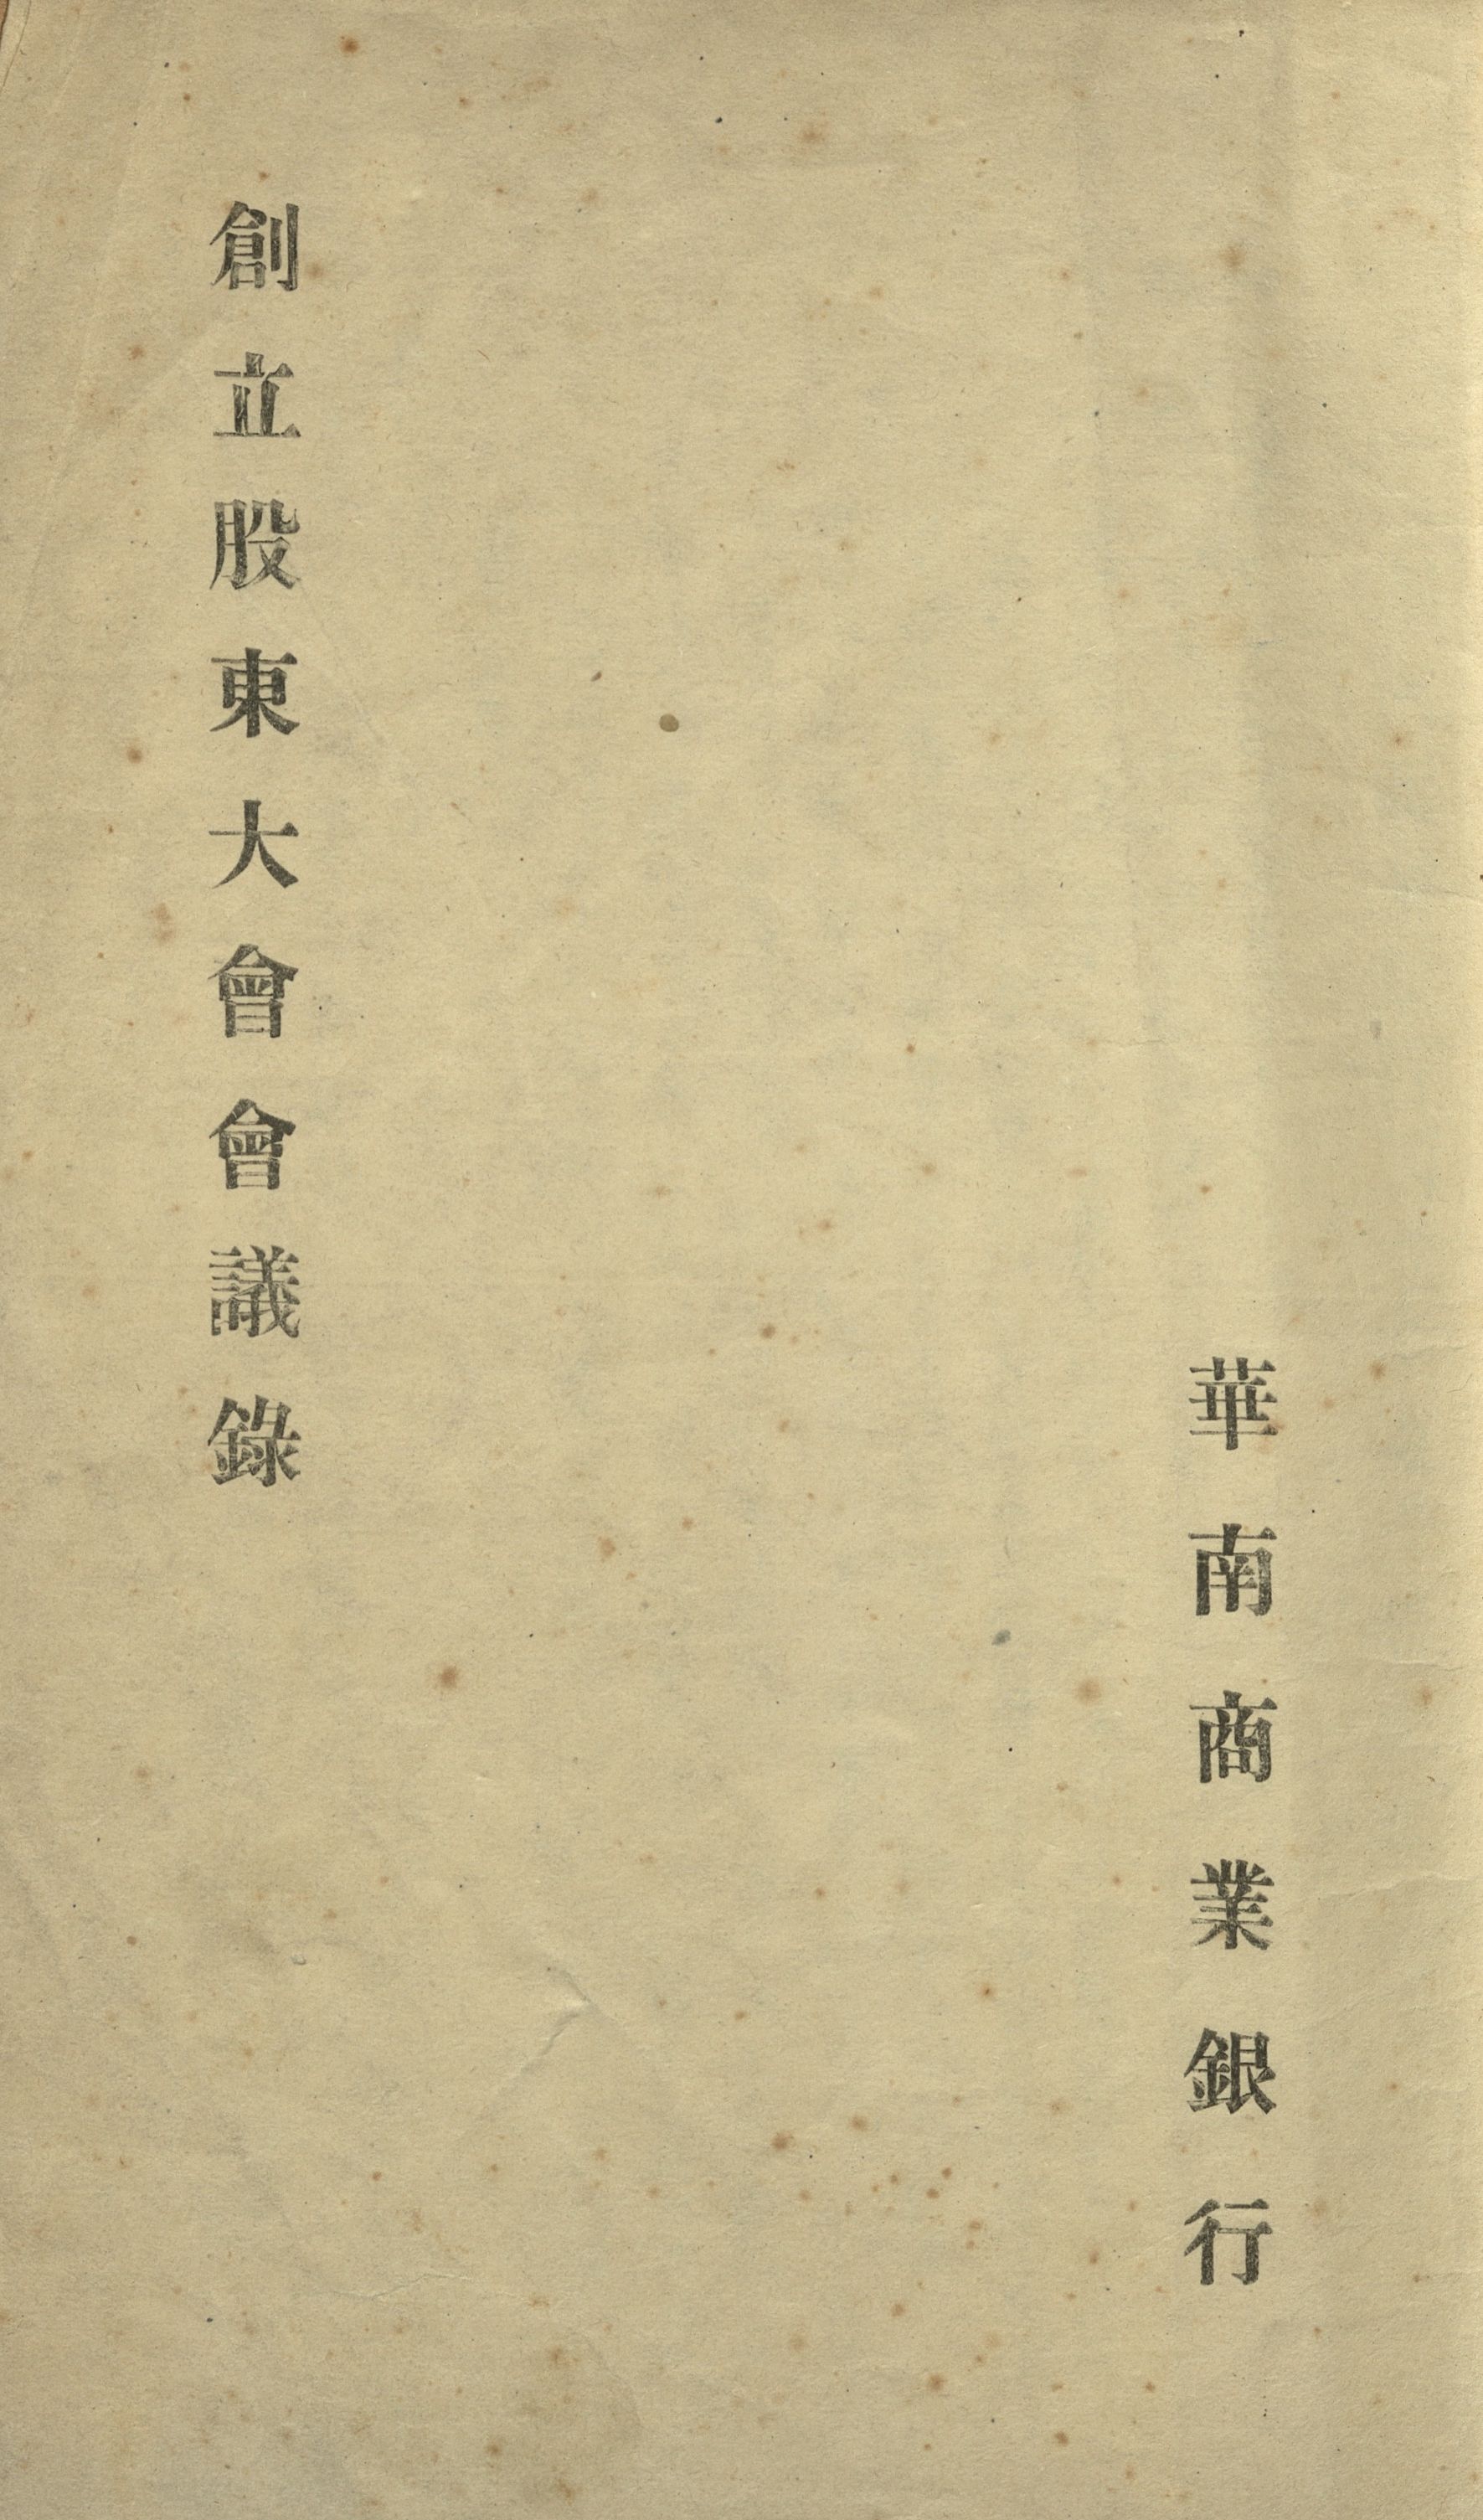 華南商業銀行
創立股東大會會議錄